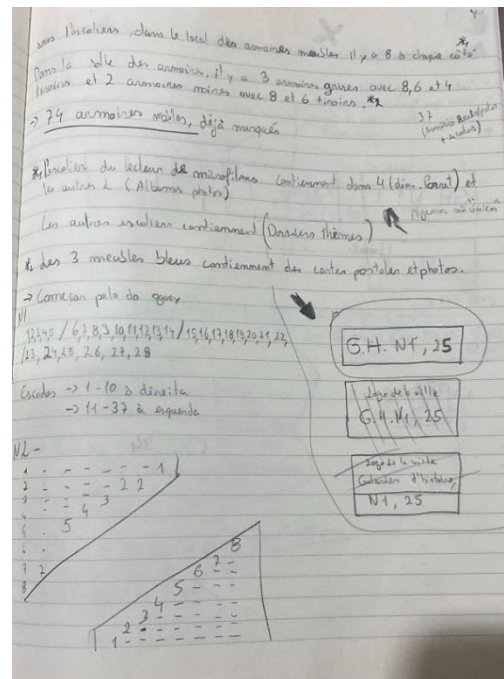 sous l'escaliers, dans le local des armoires meubles il y a 8 à chaque côté *1
Dans la salle des armoires, il y a 3 armoires grises avec 8, 6 et 4
tiroirs et 2 armoires noires avec 8 et 6 tiroirs. *2
→ 74 armoires déjà marqués
37
*1 l'escalier du lecteur de microfilms contiennent dans 4 et
les autres 2 (Albums photos)
Les autres escaliers contiennent (Dossiers thèmes)
*2 des 3 meubles bleus contiennent des cartes postales et photos.
→ Começar pelo do
N1
1,2,3,4,5 / 6,7,8,9,10,11,12,13,14 / 15,16,17,18,19,20,21,22,
/23, 24, 25, 26, 27, 28
Escadas → 1-10 à direita
→ 11-37 à esquerda
G.H. N1, 25
Logo de la ville
G.H. N1, 25
Logo de la ville
Galeries d'histoire,
N1, 25
N2 -
1 - - - - - - 1
2 - - - - 2 2
3 - - - 3
4 - - 4
5 - 5
6 -
7 2
8
8
7 - -
6 - -
5 - - -
4 - - - -
3 - - - - -
2 - - - - -
1 - - - - - -